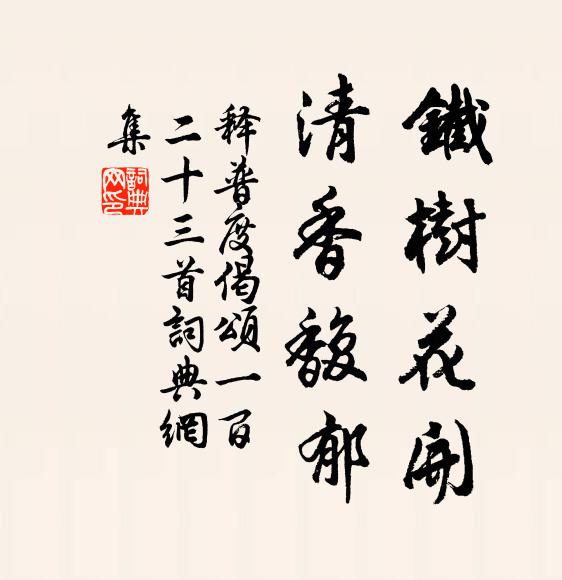 鐵樹花開
清香馥郁
释普度偈頌一百
二十三首詞典網
集
詞典网印